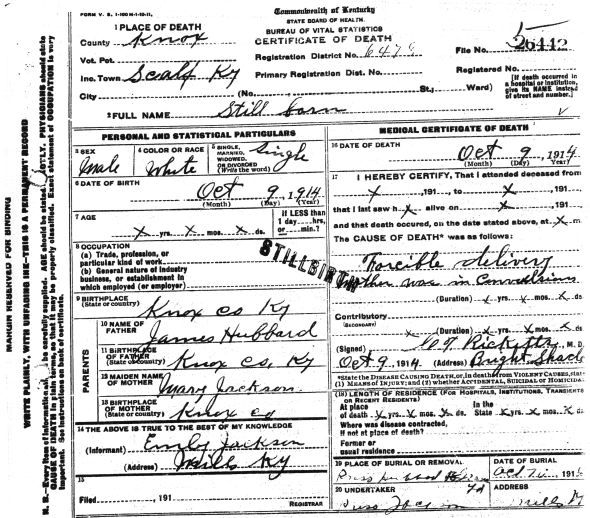 FORM V. S. 1-100M-1-10-11,
Commonwealth of Kentucky
STATE BOARD OF HEALTH.
BUREAU OF VITAL STATISTICS
CERTIFICATE OF DEATH
1 PLACE OF DEATH
County Knox
Vot. Pct.
Inc. Town Scalf Ky
City (No. St.; Ward)
Registration District No. 6476
Primary Registration Dist. No.
File No. 26412
Registered No.
[If death occurred in a hospital or institution, give its NAME instead of street and number.]
2 FULL NAME Still born
PERSONAL AND STATISTICAL PARTICULARS
3 SEX
Male
4 COLOR OR RACE
White
5 SINGLE, MARRIED, WIDOWED, OR DIVORCED (Write the word) Single
6 DATE OF BIRTH
Oct 9, 1914
(Month) (Day) (Year)
7 AGE
x yrs. x mos. x ds.
If LESS than 1 day---hrs. or----min.?
8 OCCUPATION
(a) Trade, profession, or particular kind of work
(b) General nature of industry business, or establishment in which employed (or employer)
STILLBIRTH
9 BIRTHPLACE
(State or country) Knox co Ky
PARENTS
10 NAME OF FATHER James Hubbard
11 BIRTHPLACE OF FATHER (State or country) Knox co, Ky
12 MAIDEN NAME OF MOTHER Mary Jackson
13 BIRTHPLACE OF MOTHER (State or country) Knox co
14 THE ABOVE IS TRUE TO THE BEST OF MY KNOWLEDGE
(Informant) Emily Jackson
(Address) Mills Ky
15
Filed , 191
REGISTRAR
MEDICAL CERTIFICATE OF DEATH
16 DATE OF DEATH
Oct 9, 1914
(Month) (Day) (Year)
17 I HEREBY CERTIFY, That I attended deceased from
x , 191 , to x , 191 ,
that I last saw h x alive on x , 191 ,
and that death occurred, on the date stated above, at x m.
The CAUSE OF DEATH* was as follows:
Forcible delivery
mother was in Convulsions
(Duration) x yrs. x mos. x ds
Contributory
(SECONDARY)
(Duration) x yrs. x mos. x ds.
(Signed) Ricketts, M. D.
Oct 9, 1914 (Address) Bright Shade
*State the DISEASE CAUSING DEATH, or, in deaths from VIOLENT CAUSES, state (1) MEANS OF INJURY; and (2) whether ACCIDENTAL, SUICIDAL or HOMICIDAL
(18) LENGTH OF RESIDENCE (FOR HOSPITALS, INSTITUTIONS, TRANSIENTS OR RECENT RESIDENTS)
At place of death x yrs. x mos. x ds. In the State x yrs. x mos. x ds
Where was disease contracted,
if not at place of death?
Former or
usual residence
19 PLACE OF BURIAL OR REMOVAL
DATE OF BURIAL
20 UNDERTAKER
ADDRESS
Mills Ky
MARGIN RESERVED FOR BINDING
WRITE PLAINLY, WITH UNFADING INK—THIS IS A PERMANENT RECORD